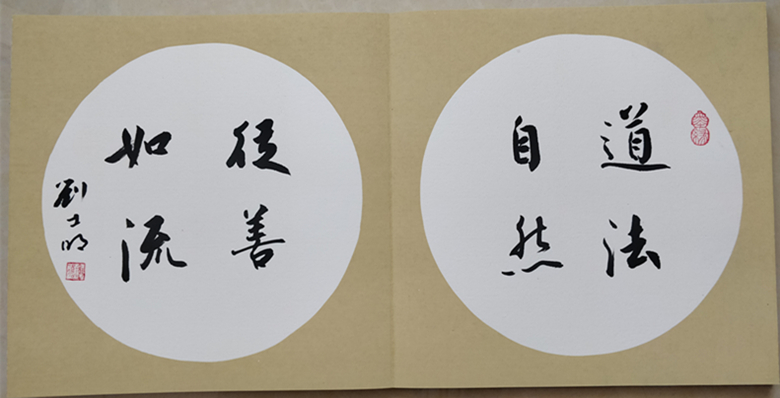 道法
自然
從善
如流
劉士明